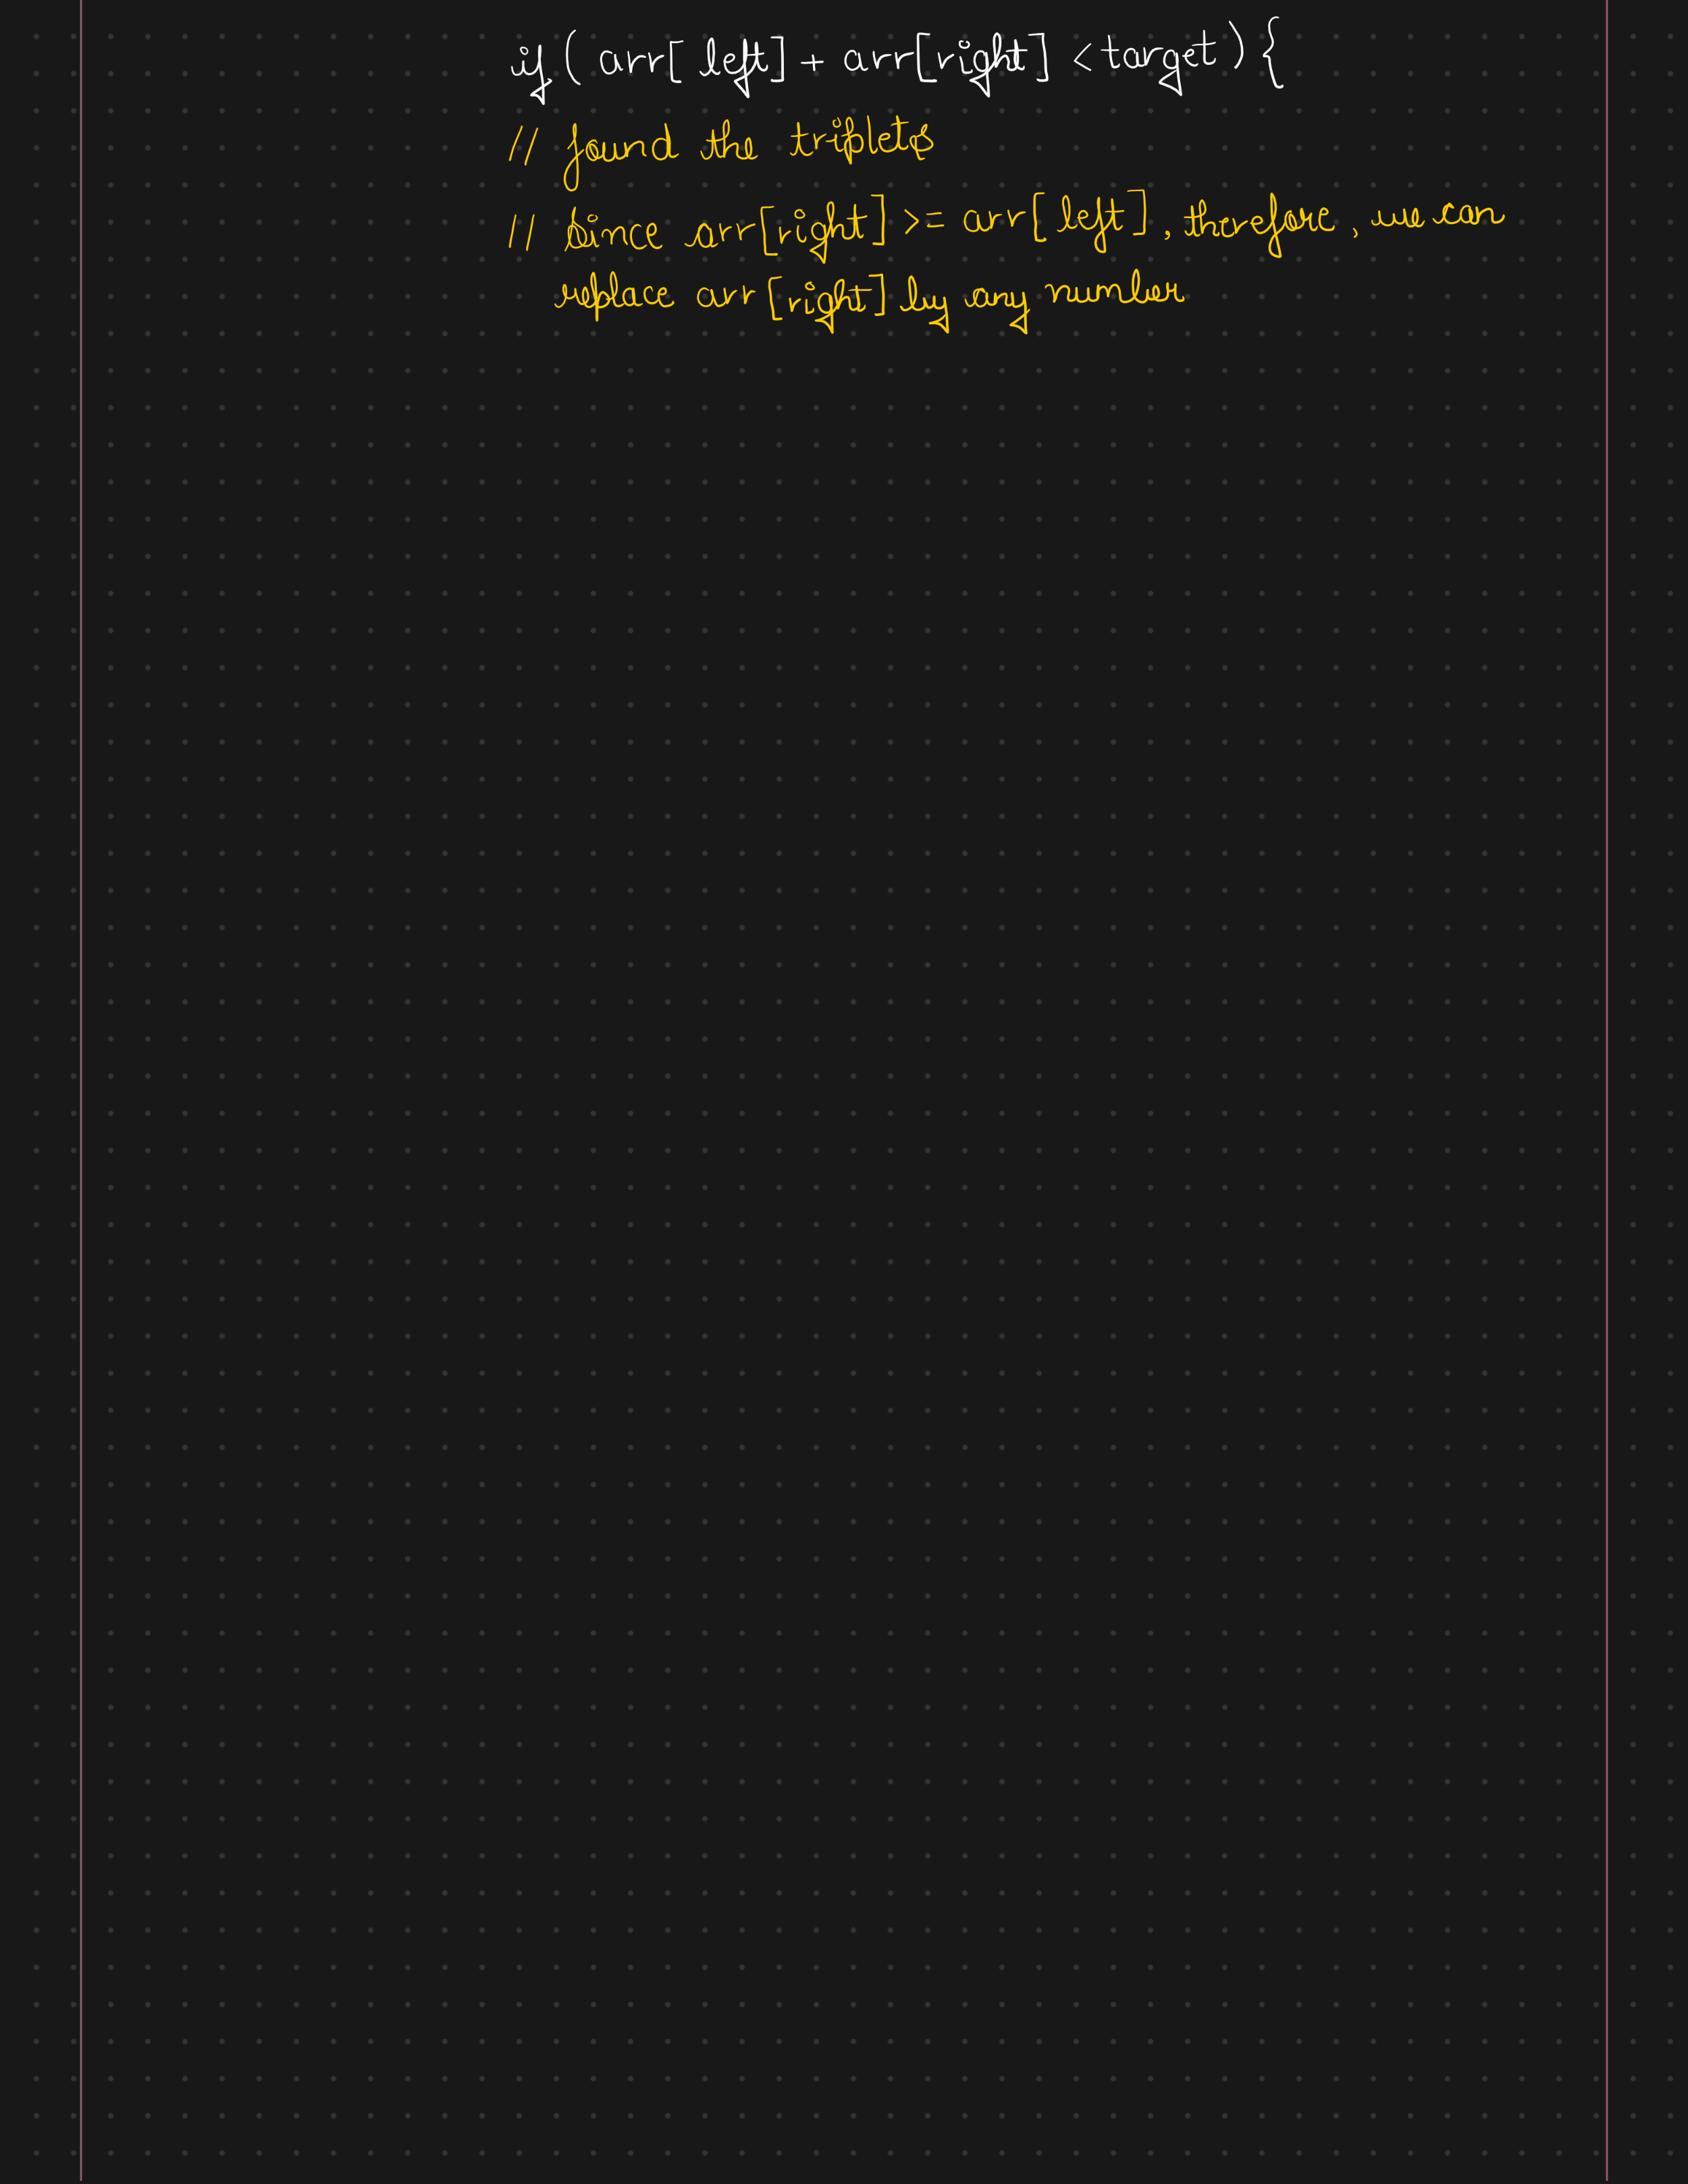 if ( arr[ left] + arr[right] < target ) {
// found the triplets
// Since arr[right] >= arr[ left] , therefore , we can
replace arr [right] by any number